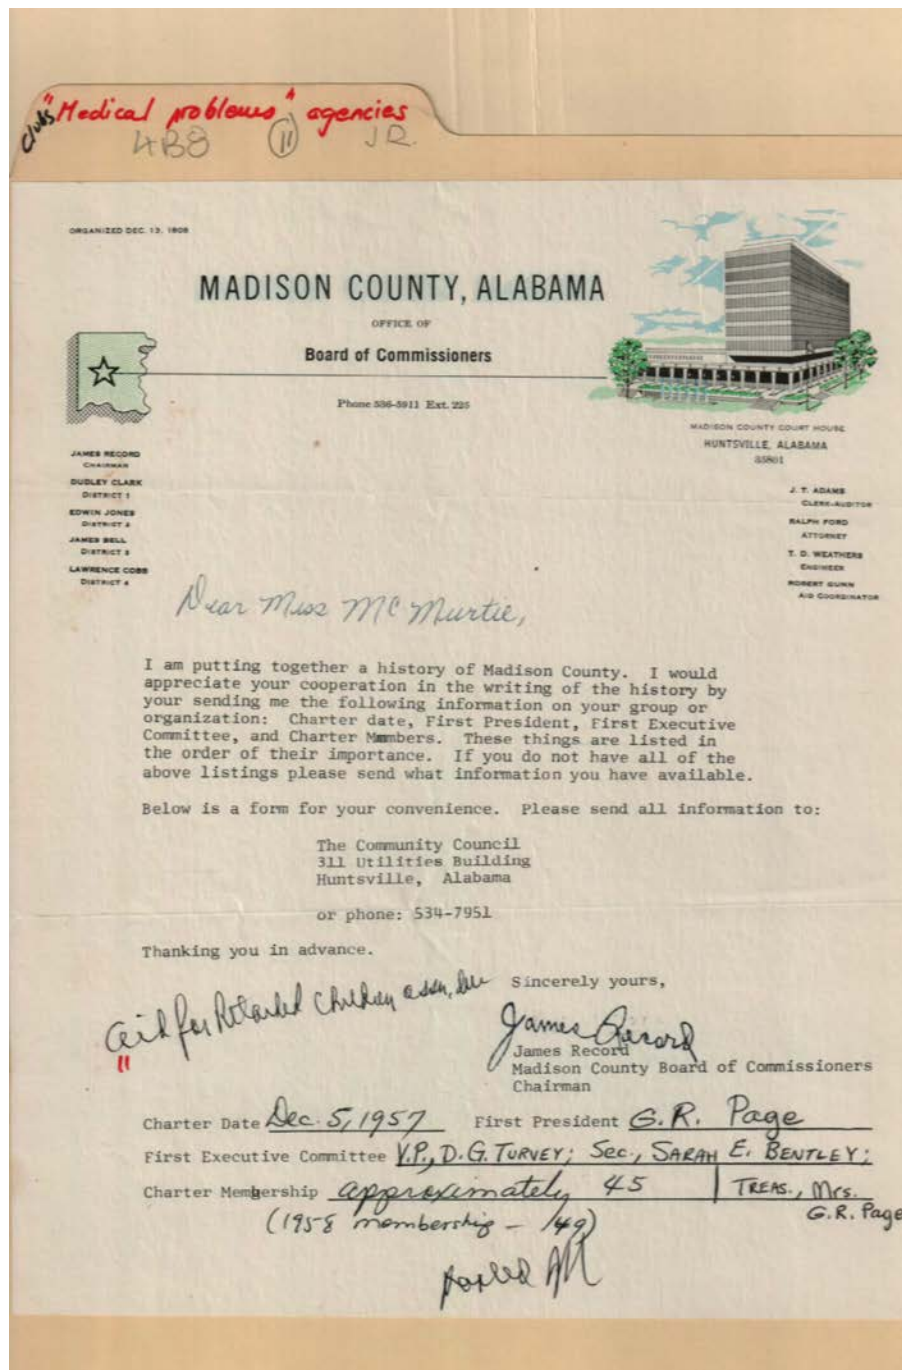 "Medical problems" agencies
clubs
4B8 11 JR.
ORGANIZED DEC. 13, 1808
MADISON COUNTY, ALABAMA
OFFICE OF
Board of Commissioners
Phone 536-5911 Ext. 225
MADISON COUNTY COURT HOUSE
HUNTSVILLE, ALABAMA
35801
JAMES RECORD
CHAIRMAN
DUDLEY CLARK
DISTRICT 1
EDWIN JONES
DISTRICT 2
JAMES BELL
DISTRICT 3
LAWRENCE COBB
DISTRICT 4
J. T. ADAMS
CLERK-AUDITOR
RALPH FORD
ATTORNEY
T. D. WEATHERS
ENGINEER
ROBERT GUNN
AID COORDINATOR
Dear Miss McMurtie,
I am putting together a history of Madison County. I would
appreciate your cooperation in the writing of the history by
your sending me the following information on your group or
organization: Charter date, First President, First Executive
Committee, and Charter Members. These things are listed in
the order of their importance. If you do not have all of the
above listings please send what information you have available.
Below is a form for your convenience. Please send all information to:
The Community Council
311 Utilities Building
Huntsville, Alabama
or phone: 534-7951
Thanking you in advance.
Aid for Retarded Children assn, Inc
Sincerely yours,
James Record
James Record
Madison County Board of Commissioners
Chairman
11
Charter Date Dec. 5, 1957 First President G.R. Page
First Executive Committee V.P., D.G. TURVEY; Sec., SARAH E. BENTLEY;
Charter Membership approximately 45 TREAS., Mrs.
G.R. Page
(1958 membership - 149)